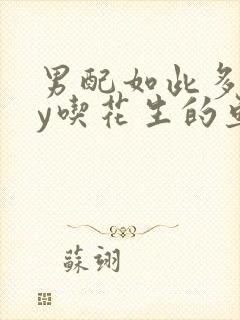 男配如此多
y喫花生的
蘇翊